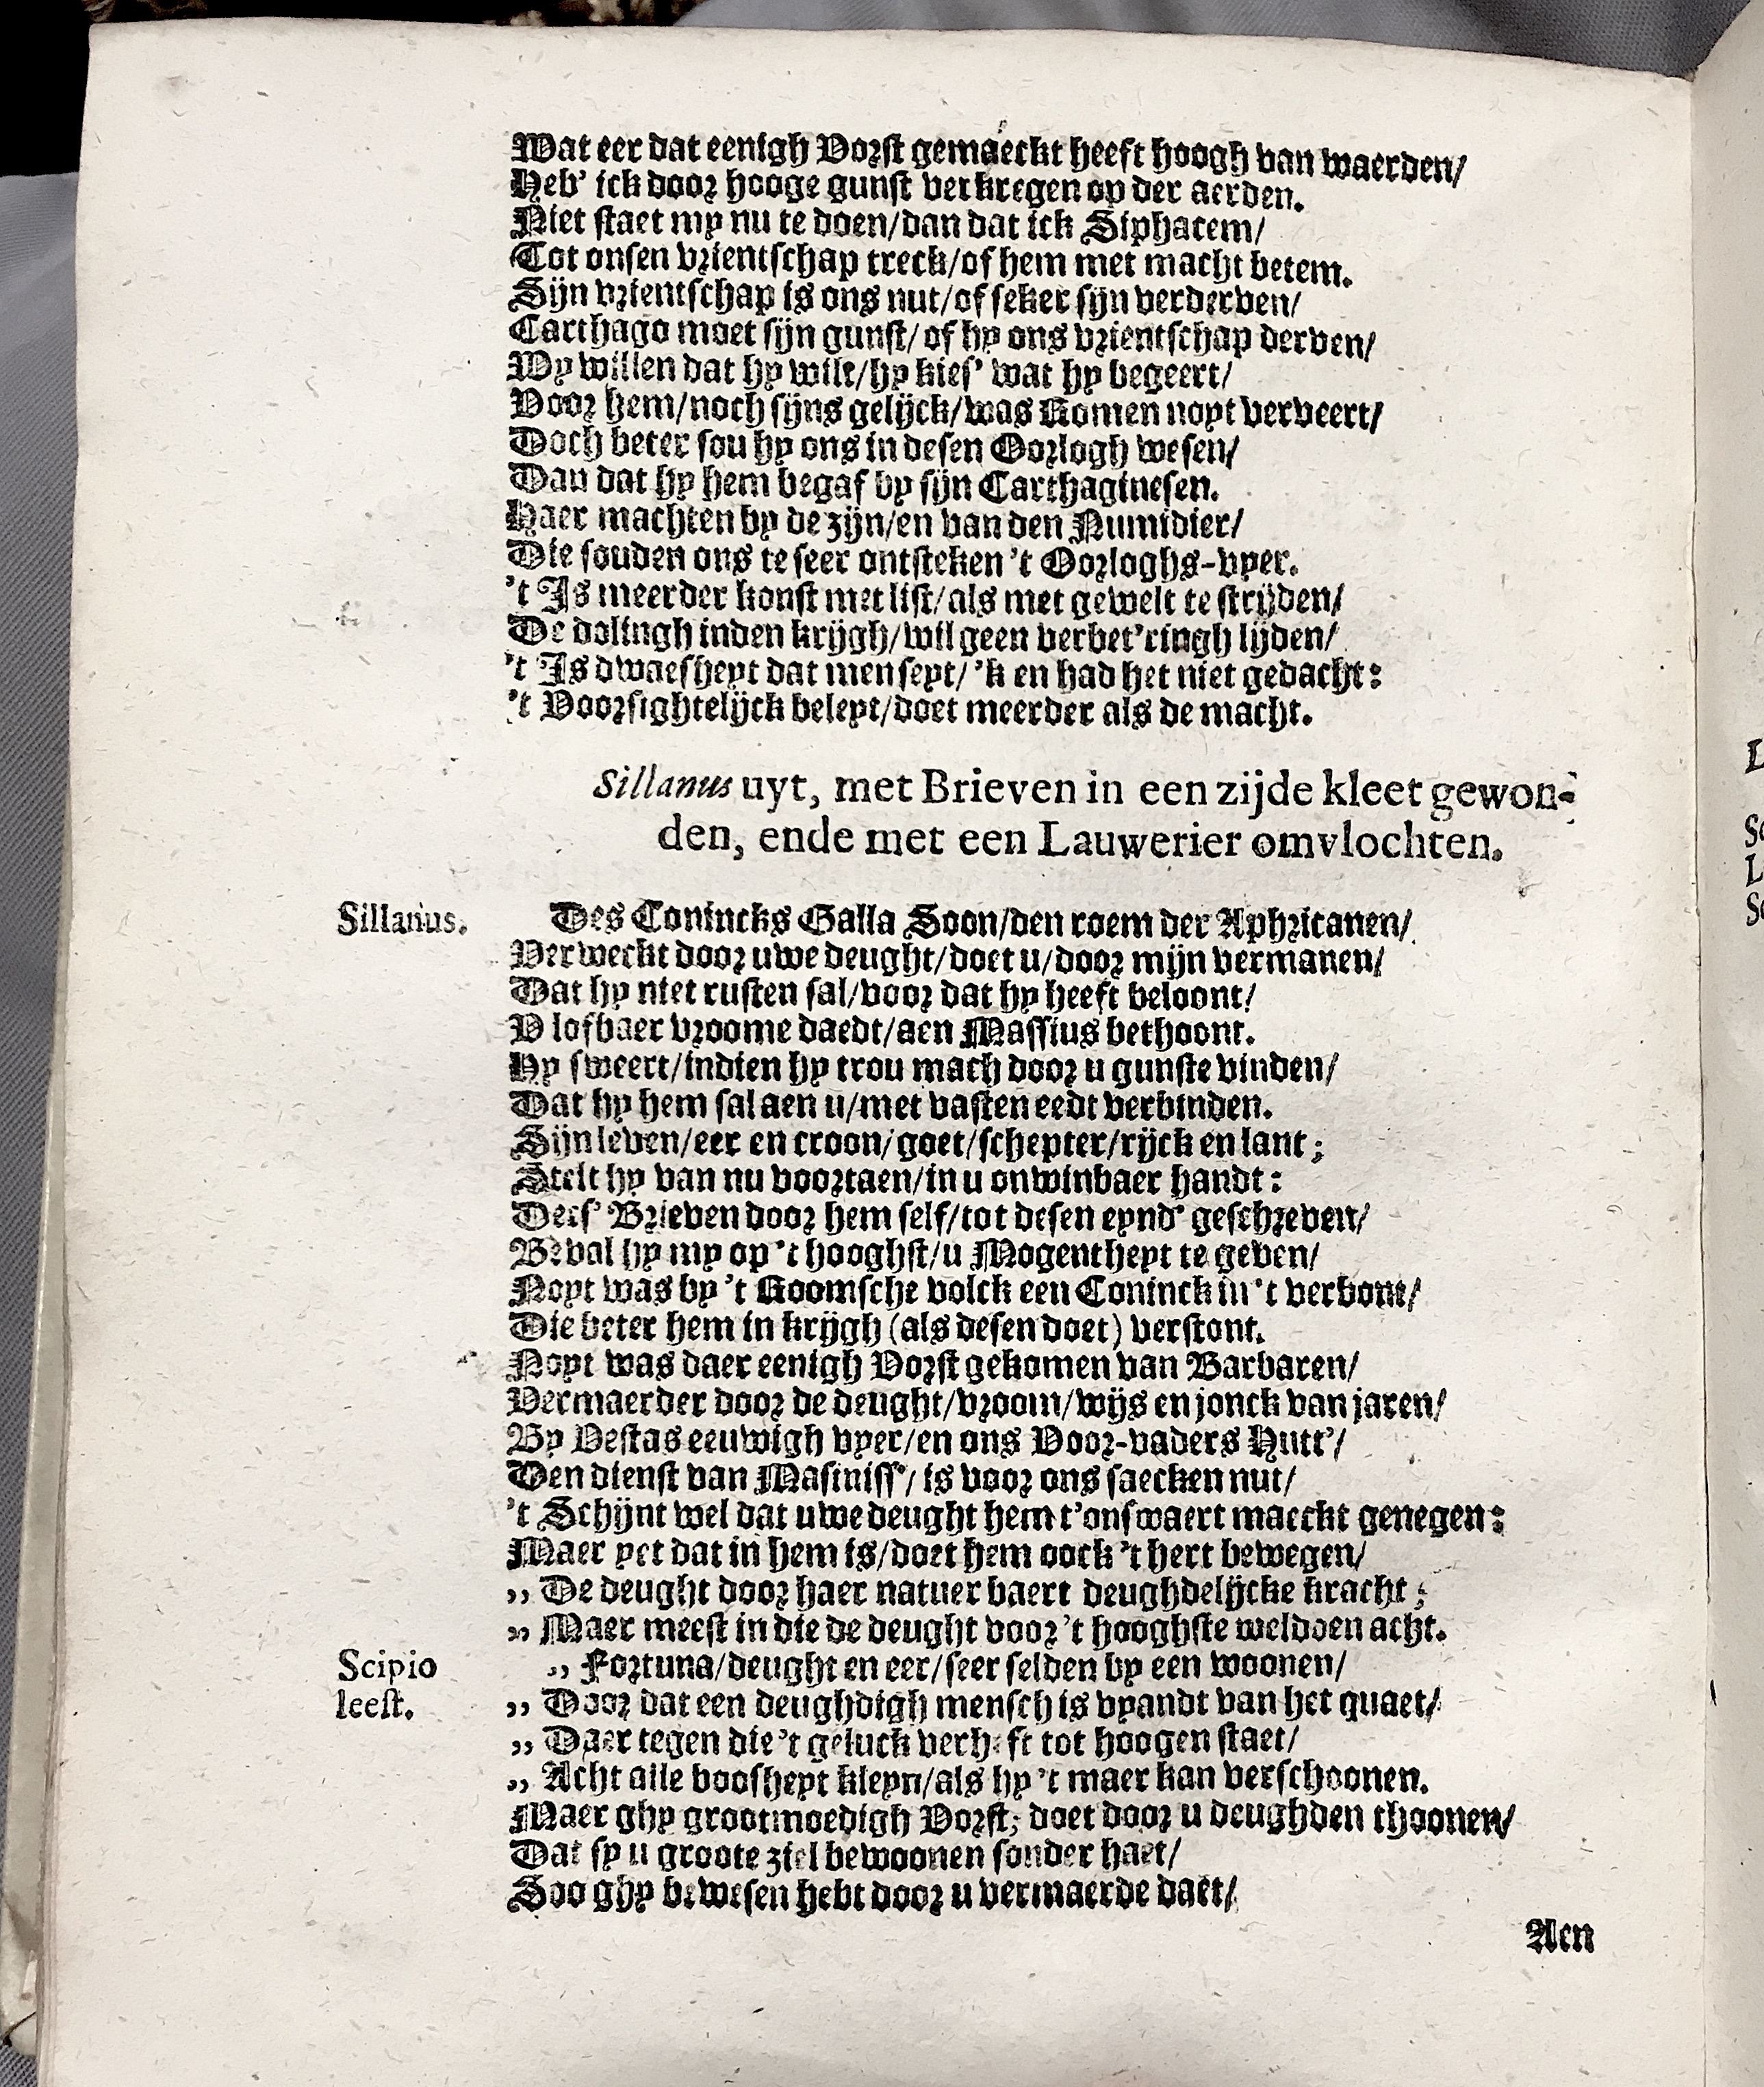 Wat eer dat eenigh Vorst gemaeckt heeft hoogh van waerden/
Heb' ick door hooge gunst verkregen op der aerden.
Niet staet my nu te doen/dan dat ick Siphacem/
Tot onsen vrientschap treck/of hem met macht betem.
Sijn vrientschap is ons nut/of seker sijn verderven/
Carthago moet sijn gunst/of hy ons vrientschap derven/
Wy willen dat hy wilt/hy kies' wat hy begeert/
Voor hem/noch sijns gelijck/was Romen noyt verveert/
Doch beter sou hy ons in desen Oorlogh wesen/
Dan dat hy hem begaf by sijn Carthaginesen.
Haer machten by de zijn/en van den Numidier/
Die souden ons te seer ontsteken 't Oorloghs-vyer.
't Is meerder konst met list/als met gewelt te strijden/
De dolingh inden krijgh/wil geen verbet'ringh lijden/
't Is dwaesheyt dat men seyt/'k en had het niet gedacht:
't Voorsightelijck beleyt/doet meerder als de macht.
Sillanus uyt, met Brieven in een zijde kleet gewon-
den, ende met een Lauwerier omvlochten.
Sillanus. Des Conincks Galla Soon/den roem der Aphricanen/
Verweckt door uwe deught/doet u/door mijn vermanen/
Dat hy niet rusten sal/voor dat hy heeft beloont/
V lofbaer vroome daedt/aen Massius bethoont.
Hy sweert/indien hy trou mach door u gunste vinden/
Dat hy hem sal aen u/met vasten eedt verbinden.
Sijn leven/eer en croon/goet/schepter/rijck en lant;
Stelt hy van nu voortaen/in u onwinbaer handt:
Dees' Brieven door hem self/tot desen eynd' geschreven/
Beval hy my op 't hooghst/u Mogentheyt te geven/
Noyt was by 't Roomsche volck een Coninck in 't verbont/
Die beter hem in krijgh (als desen doet) verstont.
Noyt was daer eenigh Vorst gekomen van Barbaren/
Vermaerder door de deught/vroom/wijs en jonck van jaren/
By Vestas eeuwigh vyer/en ons Voor-vaders Hutt'/
Den dienst van Masiniss'/is voor ons saecken nut/
't Schijnt wel dat uwe deught hem t'onswaert maeckt genegen:
Maer yet dat in hem is/doet hem oock 't hert bewegen/
,, De deught door haer natuer baert deughdelijcke kracht;
,, Maer meest in die de deught voor 't hooghste weldoen acht.
Scipio leest. ,, Fortuna/deught en eer/seer selden by een woonen/
,, Door dat een deughdigh mensch is vyandt van het quaet/
,, Daer tegen die 't geluck verheft tot hoogen staet/
,, Acht alle boosheyt kleyn/als hy 't maer kan verschoonen.
Maer ghy grootmoedigh Vorst; doet door u deughden thoonen/
Dat sy u groote ziel bewoonen sonder haet/
Soo ghy bewesen hebt door u vermaerde daet/
Aen